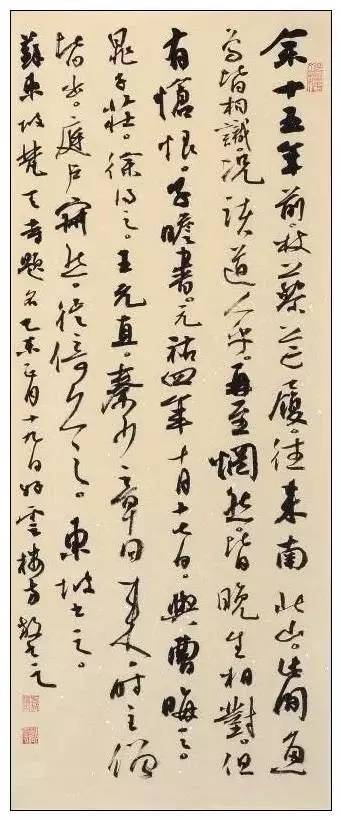 余十五年前。杖藜芒履。往来南北山。此间魚
鳥皆相識。况諸道人乎。再至惘然。皆晚生相對。但
有愴恨。子瞻書。元祐四年十月十七日。與曹晦之。
晁子莊。徐得之。王元直。秦少章同来。时主僧
皆出。庭户寂然。徙倚久之。東坡书之。
蘇東坡梵天寺題名乙未正月十九日雲樓方